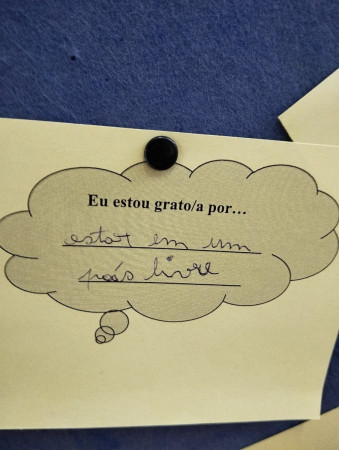 Eu estou grato/a por...
estar em um
país livre